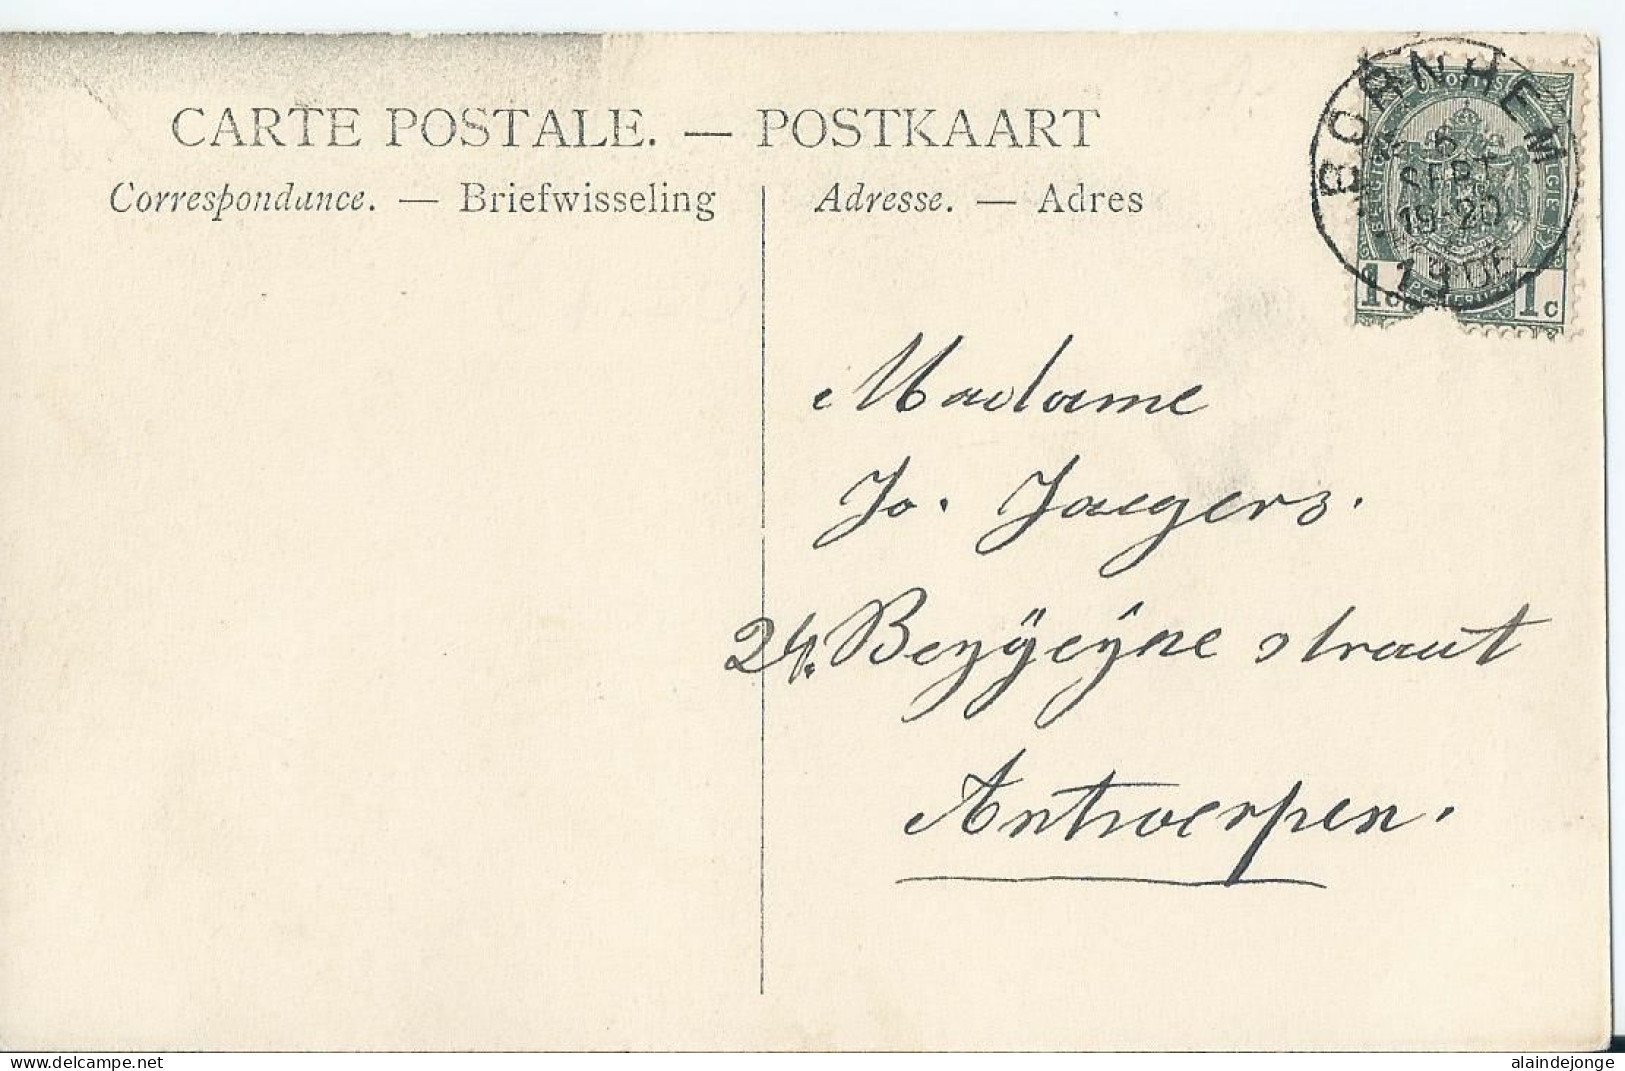 CARTE POSTALE. — POSTKAART
Correspondance. — Briefwisseling
Adresse. — Adres
BORNHEM
6
SEPT
19-20
1c 1c
Madame
Jo. Jaegers.
24. Beggeijne straat
Antwerpen.
www.delcampe.net
alaindejonge